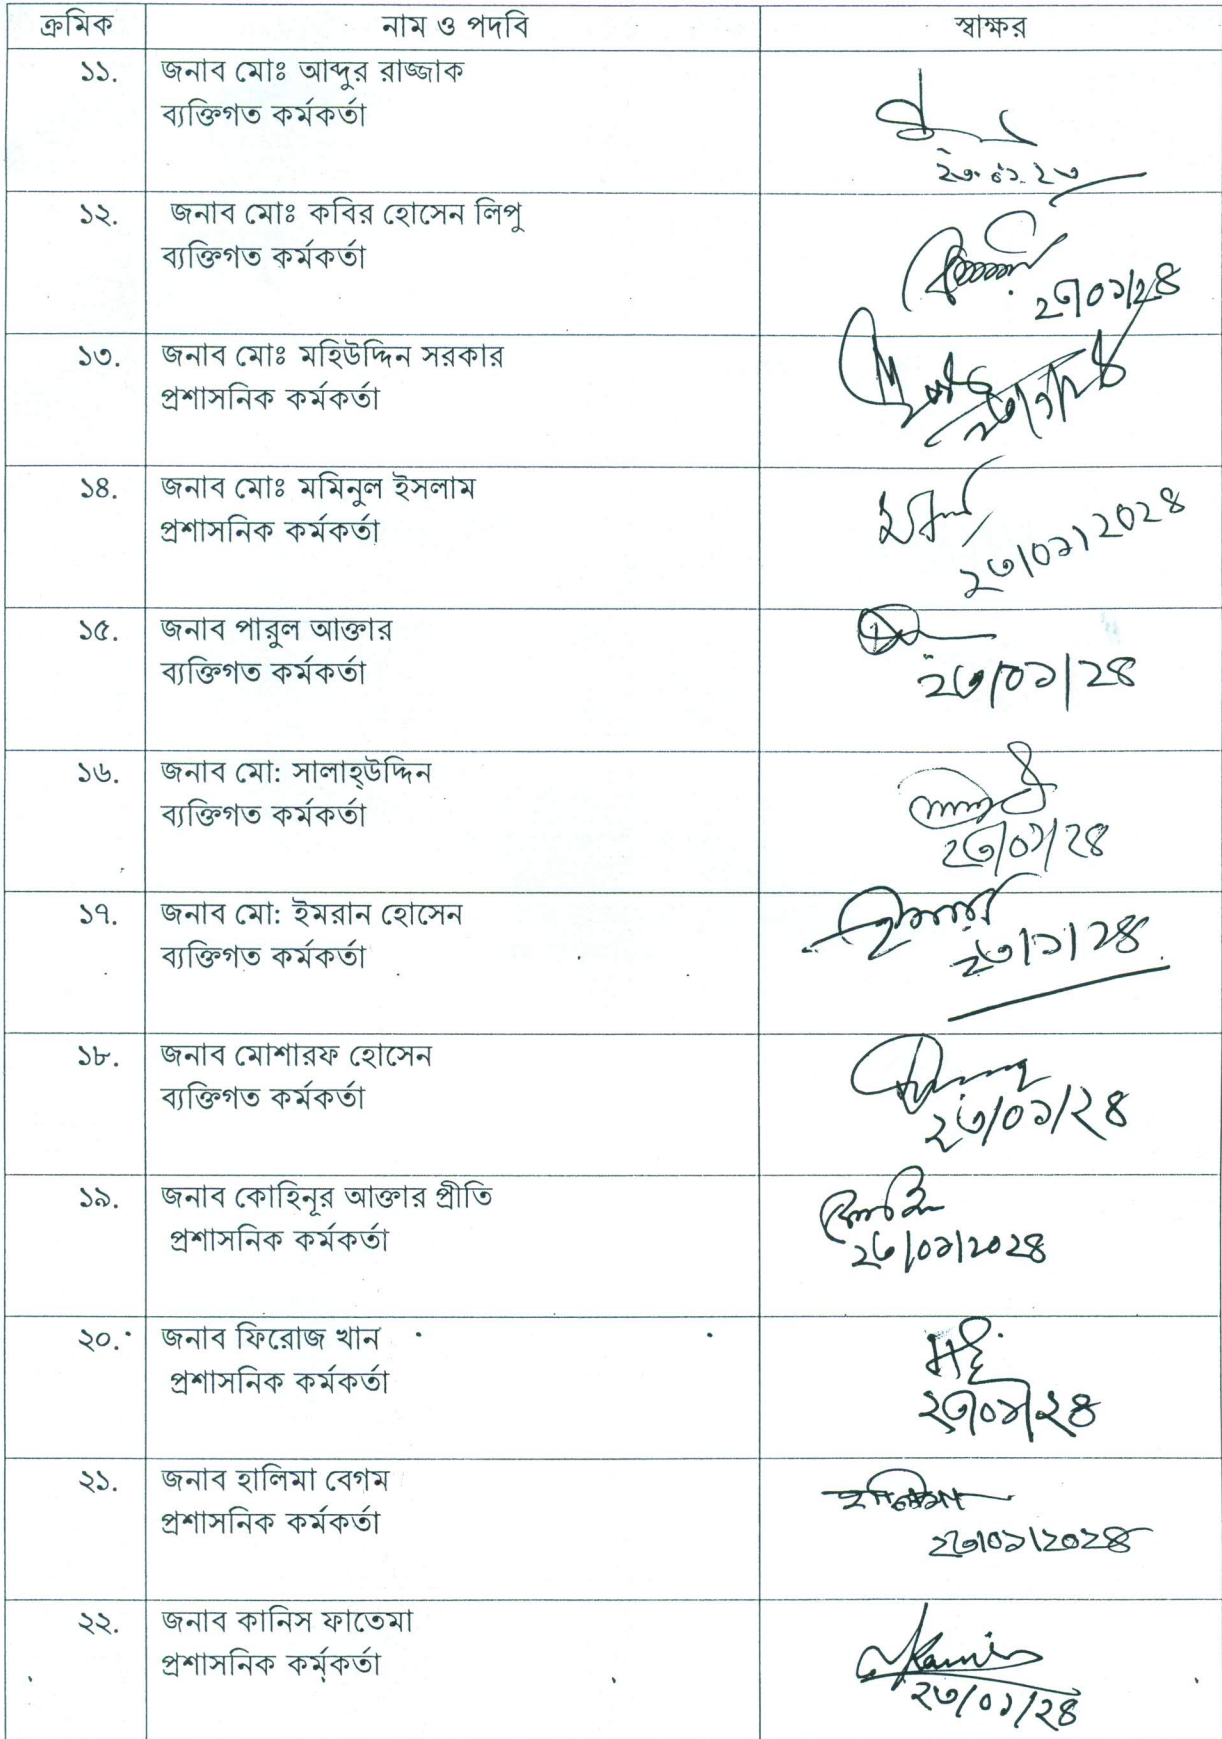 ক্রমিক নাম ও পদবি স্বাক্ষর
১১. জনাব মোঃ আব্দুর রাজ্জাক
ব্যক্তিগত কর্মকর্তা
১২. জনাব মোঃ কবির হোসেন লিপু
ব্যক্তিগত কর্মকর্তা
২৩/০১/২৪
১৩. জনাব মোঃ মহিউদ্দিন সরকার
প্রশাসনিক কর্মকর্তা
১৪. জনাব মোঃ মমিনুল ইসলাম
প্রশাসনিক কর্মকর্তা
২৩/০১/২০২৪
১৫. জনাব পারুল আক্তার
ব্যক্তিগত কর্মকর্তা
২৩/০১/২৪
১৬. জনাব মো: সালাহ্উদ্দিন
ব্যক্তিগত কর্মকর্তা
২৩/০১/২৪
১৭. জনাব মো: ইমরান হোসেন
ব্যক্তিগত কর্মকর্তা
২৩/১/২৪
১৮. জনাব মোশারফ হোসেন
ব্যক্তিগত কর্মকর্তা
২৩/০১/২৪
১৯. জনাব কোহিনূর আক্তার প্রীতি
প্রশাসনিক কর্মকর্তা
২৩/০১/২০২৪
২০. জনাব ফিরোজ খান
প্রশাসনিক কর্মকর্তা
২৩/০১/২৪
২১. জনাব হালিমা বেগম
প্রশাসনিক কর্মকর্তা
হালিমা
২৩/০১/২০২৪
২২. জনাব কানিস ফাতেমা
প্রশাসনিক কর্মকর্তা
২৩/০১/২৪